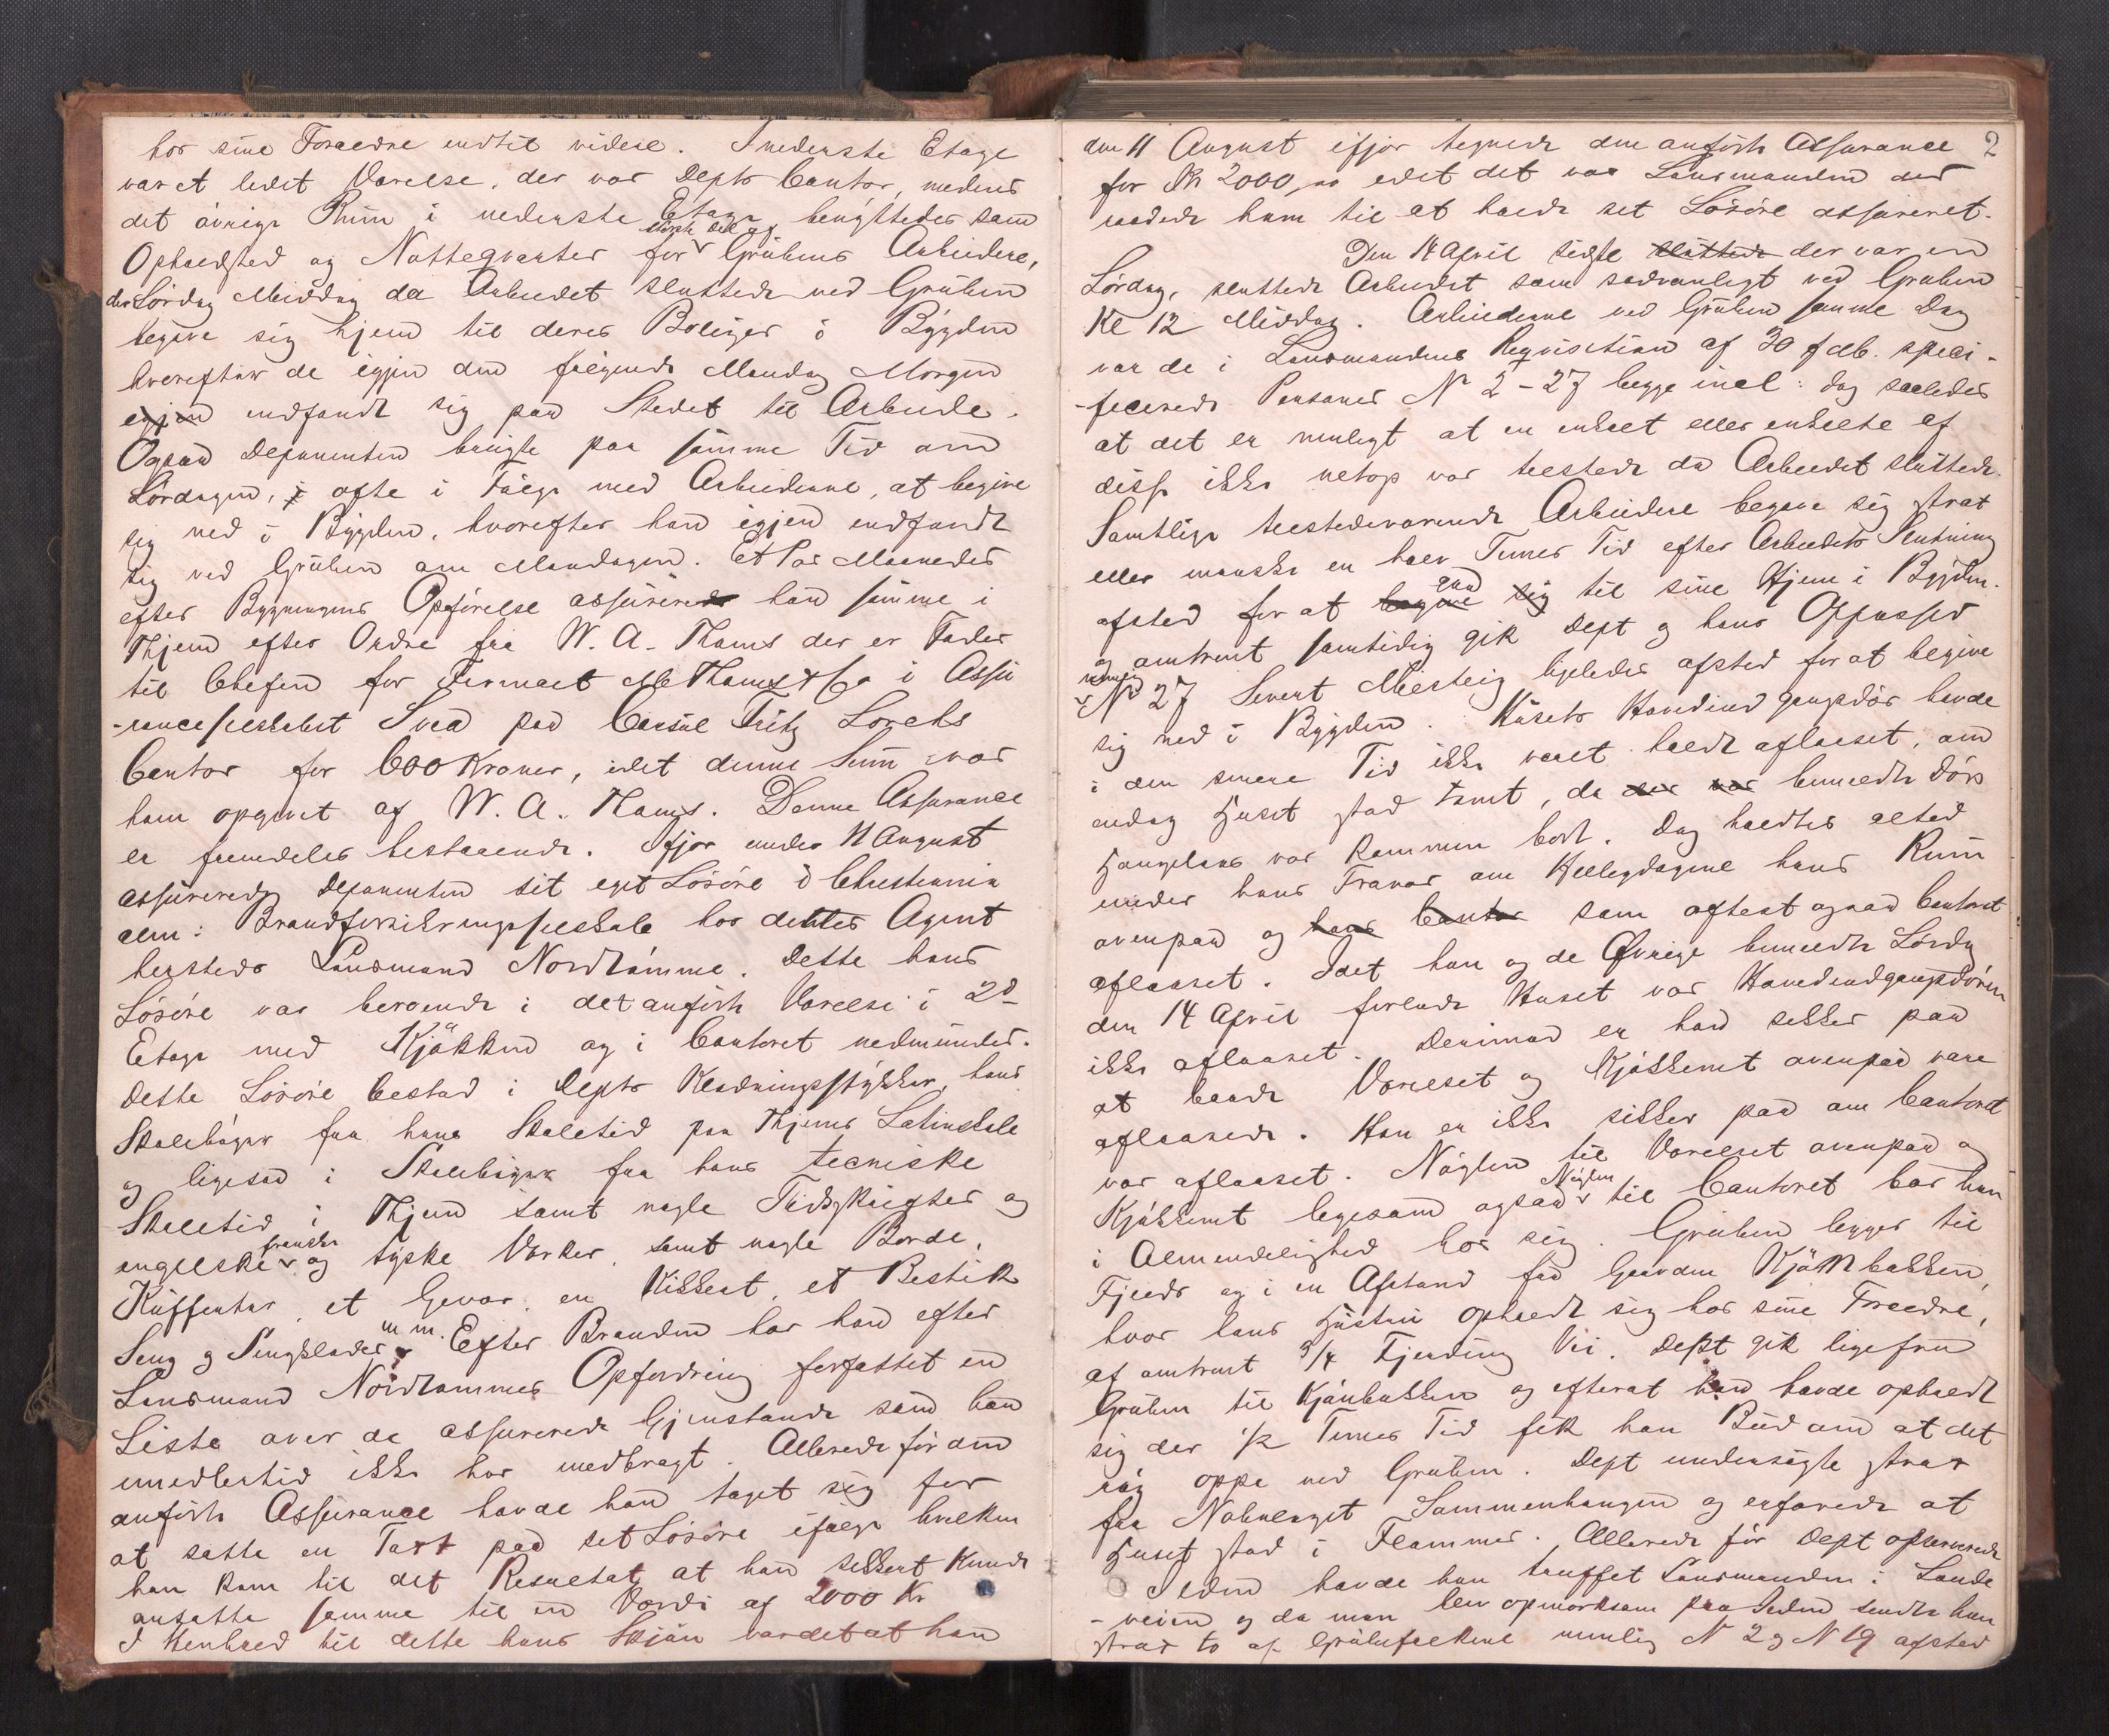 hos sine Foraeldre indtil videre. I nederste Etage
var et lidet Værelse, der var Depts Contor, medens
det övrige Rum i nederste Etage benyttedes som
Opholdsted og Natteqvarter for större Del af Grubens Arbeidere,
der Lördag Middag da Arbeidet sluttede ved Gruben
begave sig hjem til deres Boliger i Bygden
hvorefter de igjen den fölgende Mandag Morgen
igjen indfandt sig paa Stedet til Arbeide.
Ogsaa Deponenten brugte paa samme Tid om
Lördagen, ofte i Fölge med Arbeiderne, at begive
sig ned i Bygden, hvorefter han igjen indfandt
sig ved Gruben om Mandagen. Et Par Maaneder
efter Bygningens Opförelse assurerede han samme i
Thjem efter Ordre fra W. A. Thams der er Fader
til Chefen for Firmaet M Thams & Co i Assu
-ranceselskabet Svea paa Consul Fritz Lorcks
Contor for 600 Kroner, idet denne Sum var
ham opgivet af W. A. Thams. Denne Assurance
er fremdeles bestaaende. Ifjor under 11 August
assurerede Deponenten sit eget Lösöre i Christiania
alm: Brandforsikringsselskab hos dettes Agent
hersteds Lensmand Nordrömme. Dette hans
Lösöre var beroende i det anförte Værelse i 2d
Etage med Kjökken og i Contoret nedenunder.
Dette Lösöre bestod i Depts Klædningsstykker, hans
Skoleböger fra hans Skoletid paa Thjems Latinskole
og ligesaa i Skoleböger fra hans tecniske
Skoletid i Thjem samt nogle Tidsskrifter og
engelske franske og tyske Værker, samt nogle Borde,
Kufferter, et Gevær, en Kikkert, et Bestik
Seng og Sengklæder m m. Efter Branden har han efter
Lensmand Nordrömmes Opfordring forfattet en
Liste over de assurerede Gjenstande som han
imidlertid ikke har medbragt. Allerede för den
anförte Assurance havde han taget sig for
at sætte en Taxt paa sit Lösöre ifölge hvilken
han kom til det Resultat at han sikkert kunde
ansætte samme til en Værdi af 2000 Kr
I Henhold til dette hans Skjön var det at han
2
den 11 August ifjor tegnede den anförte Assurance
for Kr 2000,00 idet det var Lensmanden der
raadede ham til at holde sit Lösöre assureret.
Den 14 April sidste sluttede der var en
Lördag, sluttede Arbeidet som sædvanligt ved Gruben
Kl 12 Middag. Arbeiderne ved Gruben samme Dag
var de i Lensmandens Reqvisition af 30 f dM. speci-
-ficerede Personer N 2 - 27 begge incl: dog saaledes
at det er muligt at en enkelt eller enkelte af
disse ikke netop var tilstede da Arbeidet sluttede.
Samtlige tilstedeværende Arbeidere begave sig strax
eller maaske en halv Times Tid efter Arbeidets Slutning
afsted for at begive sig gaa til sine Hjem i Bygden.
og omtrent samtidig gik Dept og hans Oppasser
nemlig N 27 Sivert Miesteig ligeledes afsted for at begive
sig ned i Bygden. Husets Hovedindgangsdör havde
i den senere Tid ikke været holdt aflaaset, om
endog Huset stod tomt, da der var bemeldte Dörs
Hængelaas var kommen bort. Dog holdtes altid
under hans Fravær om Helligdagene hans Rum
ovenpaa og hans Contor som oftest ogsaa Contoret
aflaaset. Idet han og de Øvrige bemeldte Lördag
den 14 April forlode Huset var Hovedindgangsdören
ikke aflaaset. Derimod er han sikker paa
at baade Værelset og Kjökkenet ovenpaa vare
aflaasede. Han er ikke sikker paa om Contoret
var aflaaset. Nöglen til Værelset ovenpaa og
Kjökkenet ligesom ogsaa Nöglen til Contoret bar han
i Almindelighed hos sig. Gruben ligger til
Fjelds og i en Afstand fra Gaarden Kjönbakken,
hvor hans Hustru opholdt sig hos sine Foreldre,
af omtrent 3/4 Fjerding Vei. Dept gik ligefrem
Gruben til Kjönbakken og efterat han havde opholdt
sig der 1/2 Times Tid fik han Bud om at det
rög oppe ved Gruben. Dept undersögte strax
fra Sammenhængen og erfarede at
Huset stod i Flammer. Allerede för Dept observerede
Ilden havde han truffet Lensmanden i Lande
-veien og da man blev opmærksom paa Ilden sendte han
strax to af Grubefolkene nemlig N 2 og N 19 afsted